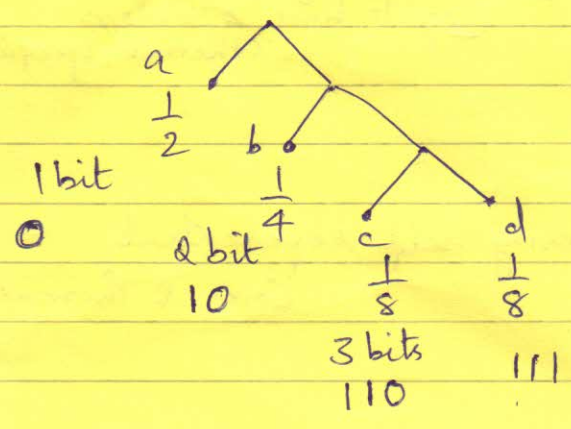 a
1/2
1 bit
0
b
1/4
2 bit
10
c
1/8
3 bits
110
d
1/8
111